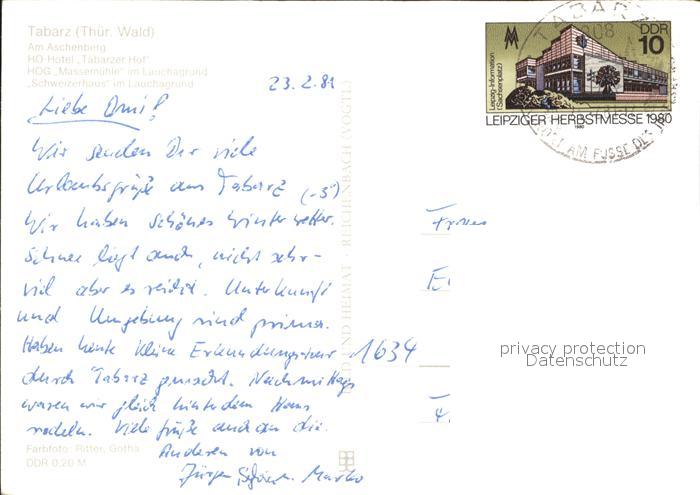 Tabarz (Thür. Wald)
Am Aschenberg
HO-Hotel „Tabarzer Hof"
HOG „Massemühle" im Lauchagrund
„Schweizerhaus" im Lauchagrund
23.2.81
Liebe Omi!
Wir senden Dir viele
Urlaubsgrüße aus Tabarz (-3°)
Wir haben schönes Winterwetter.
Schnee liegt auch, nicht sehr
viel aber es reicht. Unterkunft
und Umgebung sind prima.
Haben heute kleine Erkundungstour
durch Tabarz gemacht. Nachmittags
waren wir gleich hinter dem Haus
rodeln. Viele Grüße auch an die
Anderen von
Jürgen Marko
Farbfoto: Ritter, Gotha
DDR 0,20 M
BILD UND HEIMAT · REICHENBACH (VOGTL)
DDR
10
Leipzig-Information
(Sachsenplatz)
LEIPZIGER HERBSTMESSE 1980
1980
TABARZ
5808
AM FUSSE DES
1634
privacy protection
Datenschutz